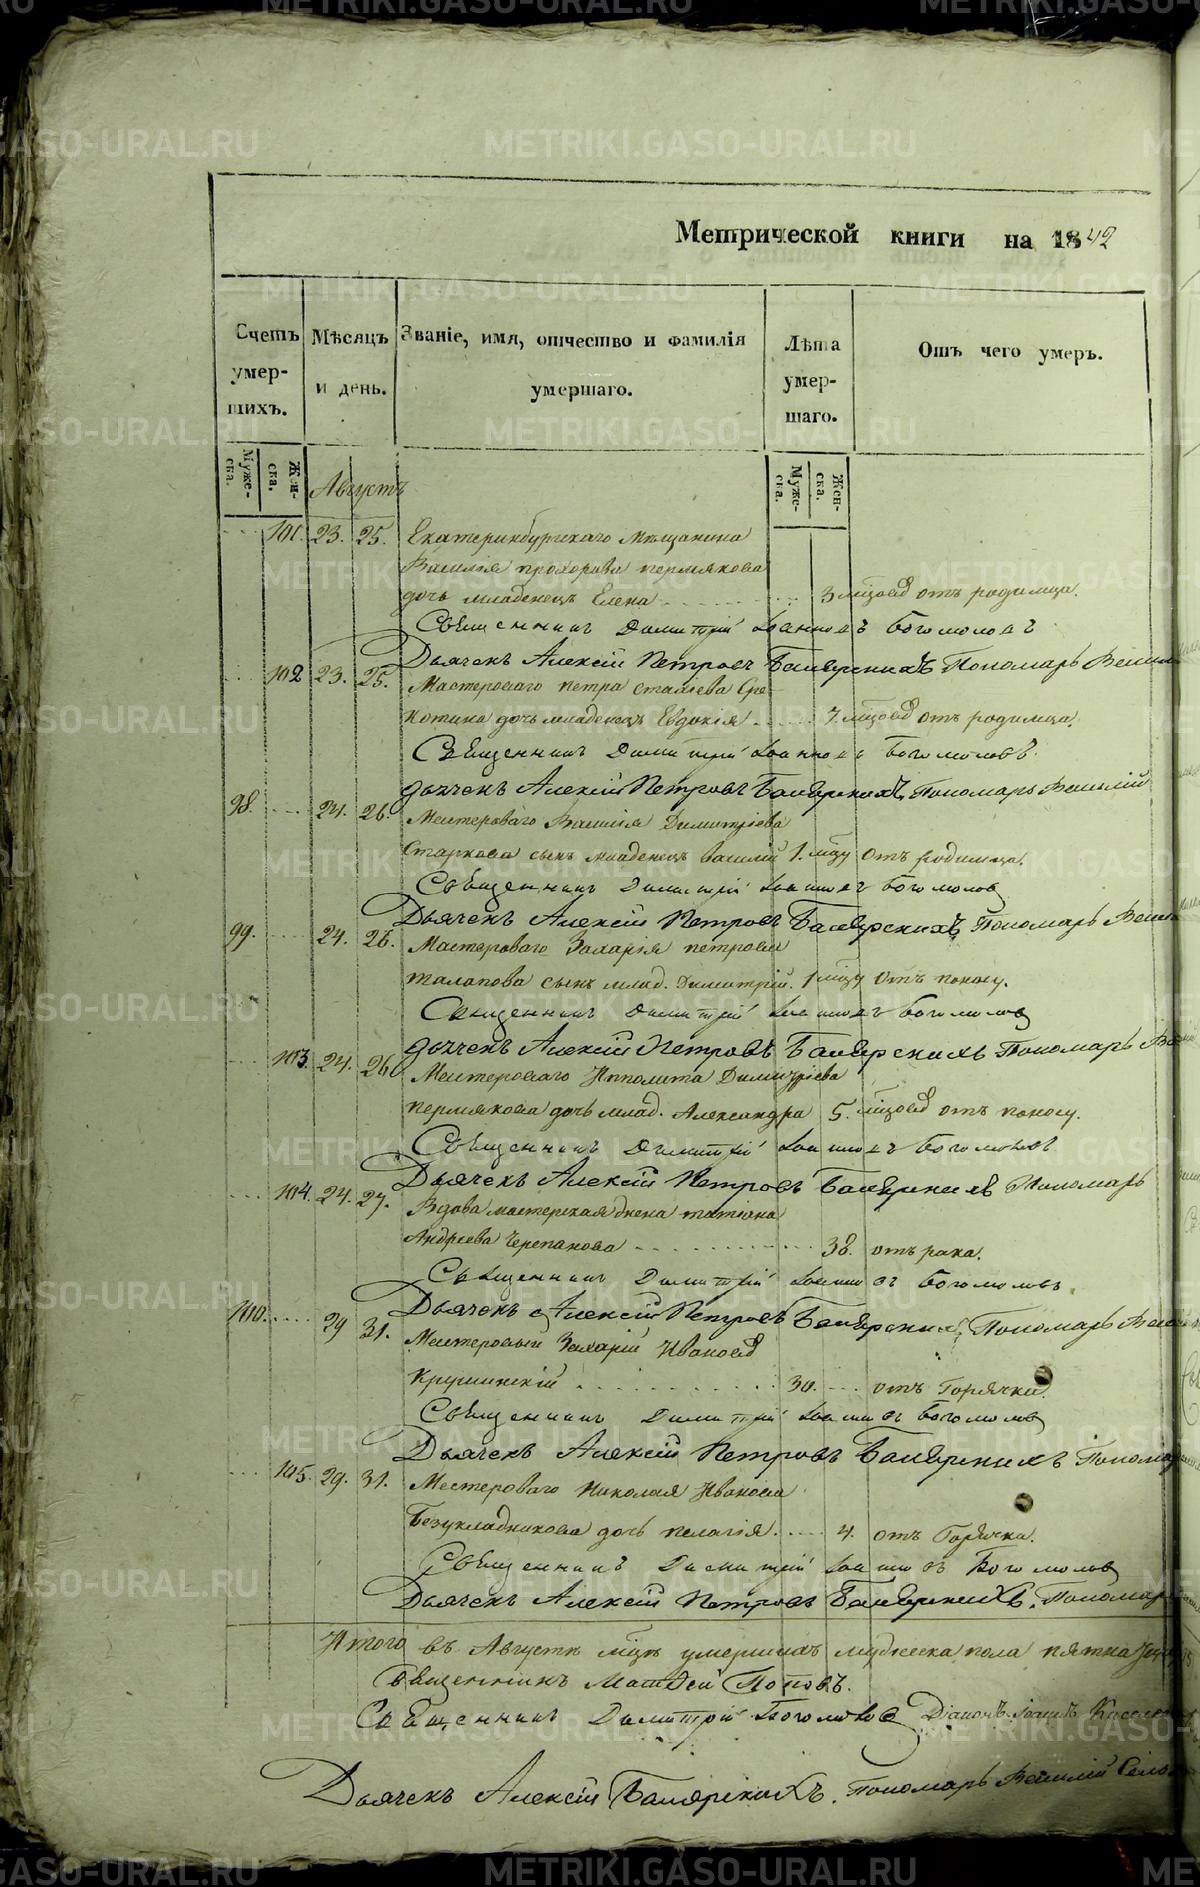 Метрической книги на 1842
Счетъ умер-шихъ.
Мѣсяцъ и день.
Званіе, имя, отчество и фамилія умершаго.
Лѣта умер-шаго.
Отъ чего умеръ.
Муже-ска. Жен-ска.
Муже-ска. Жен-ска.
Августъ
101. 23. 25. Екатеринбургскаго мѣщанина
Василія Прохорова Пермякова
дочь младенецъ Елена 3 мцовъ отъ родимца.
Священникъ Димитрій Іоанновъ Богомоловъ
Дьячекъ Алексій Петровъ Пономарь
102 23. 25. Мастероваго Петра
дочь младенецъ Евдокія 7. мцовъ отъ родимца.
Священникъ Димитрій Іоанновъ Богомоловъ.
дьячекъ Алексій Петровъ Пономарь Василій
98. 24. 26. Мастероваго Василія Димитріева
Старкова сынъ младенецъ Василій 1. мцу отъ родимца.
Священникъ Димитрій Іоанновъ Богомоловъ
Дьячекъ Алексій Петровъ Пономарь
99. 24. 26. Мастероваго Захарія Петрова
Талапова сынъ млад. Димитрій. 1 мцу отъ поносу.
Священникъ Димитрій Іоанновъ Богомоловъ
дьячекъ Алексій Петровъ Пономарь
103. 24. 26 Мастероваго Ипполита Димитріева
Пермякова дочь млад. Александра 5. мцовъ отъ поносу.
Священникъ Димитрій Іоанновъ Богомоловъ
Дьячекъ Алексій Петровъ Пономарь
104. 24. 27. Вдова мастерская жена Татіана
Андреева Черепанова 38. отъ рака.
Священникъ Димитрій Іоанновъ Богомоловъ
Дьячекъ Алексій Петровъ Пономарь
100. 29 31. Мастеровый Захарій Ивановъ
Крушинскій 30. отъ горячки.
Священникъ Димитрій Іоанновъ Богомоловъ
Дьячекъ Алексій Петровъ
105. 29. 31. Мастероваго Николая Иванова
Безукладникова дочь Пелагія. 4. отъ горячки.
Священникъ Димитрій Іоанновъ Богомоловъ
Дьячекъ Алексій Петровъ
Итого въ Августѣ мцѣ умершихъ мужеска пола
Священникъ Матѳей Поповъ.
Священникъ Димитрій Богомоловъ Діаконъ
Дьячекъ Алексій Пономарь Василій
METRIKI.GASO-URAL.RU